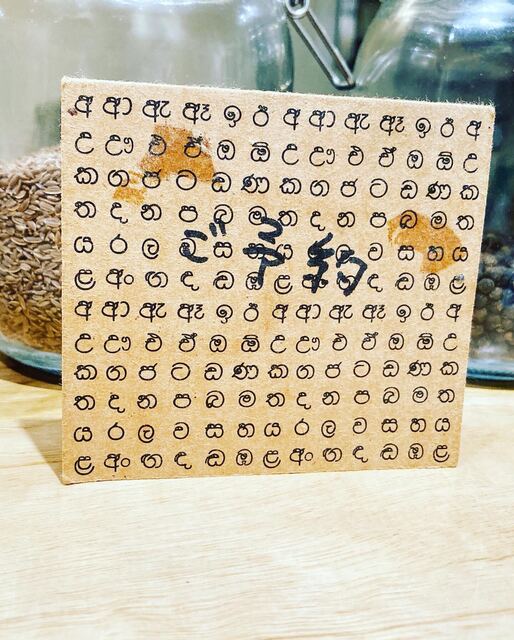 අ ආ ඇ ඈ ඉ ඊ අ ආ ඇ ඈ ඉ ඊ අ
උ ඌ එ ඒ ඔ ඕ උ ඌ එ ඒ ඔ ඕ උ
ක ග ජ ට ඩ ණ ක ග ජ ට ඩ ණ ක
ත ද න ප බ ම ත ද න ප බ ම ත
ය ර ල ව ස හ ය ර ල ව ස හ ය
ご予約
ළ අං ඟ ඳ ඬ ඹ ළ අං ඟ ඳ ඬ ඹ ළ
අ ආ ඇ ඈ ඉ ඊ අ ආ ඇ ඈ ඉ ඊ අ
උ ඌ එ ඒ ඔ ඕ උ ඌ එ ඒ ඔ ඕ උ
ක ග ජ ට ඩ ණ ක ග ජ ට ඩ ණ ක
ත ද න ප බ ම ත ද න ප බ ම ත
ය ර ල ව ස හ ය ර ල ව ස හ ය
ළ අං ඟ ඳ ඬ ඹ ළ අං ඟ ඳ ඬ ඹ ළ